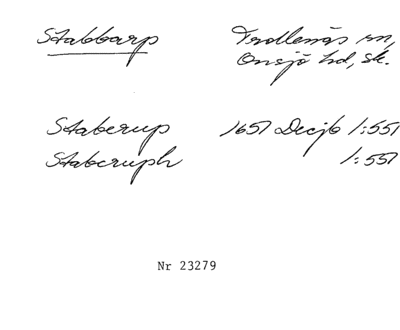 Stabbarp Trollenäs sn,
Onsjö hd, Sk.
Staberup 1651 Decjb 1:551
Staberuph 1:551
Nr 23279